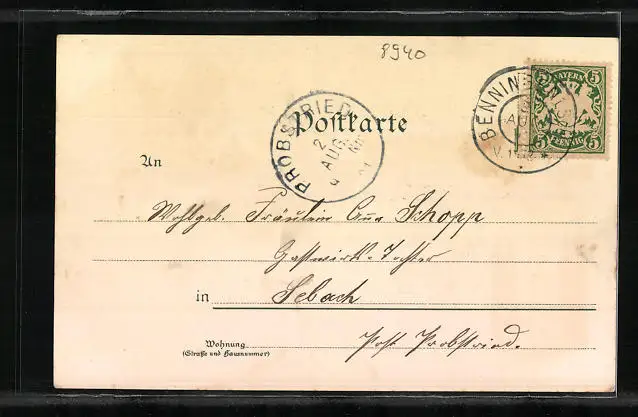 8940
BAYERN
5 5
5 PFENNIG 5
BENNINGEN
AUG
PROBSTRIED
2
AUG
Postkarte
An
Wohlgeb. Fräulein Anna Schopp
Gastwirts-Tochter
in Sebach
Post Probstried.
Wohnung
(Straße und Hausnummer)